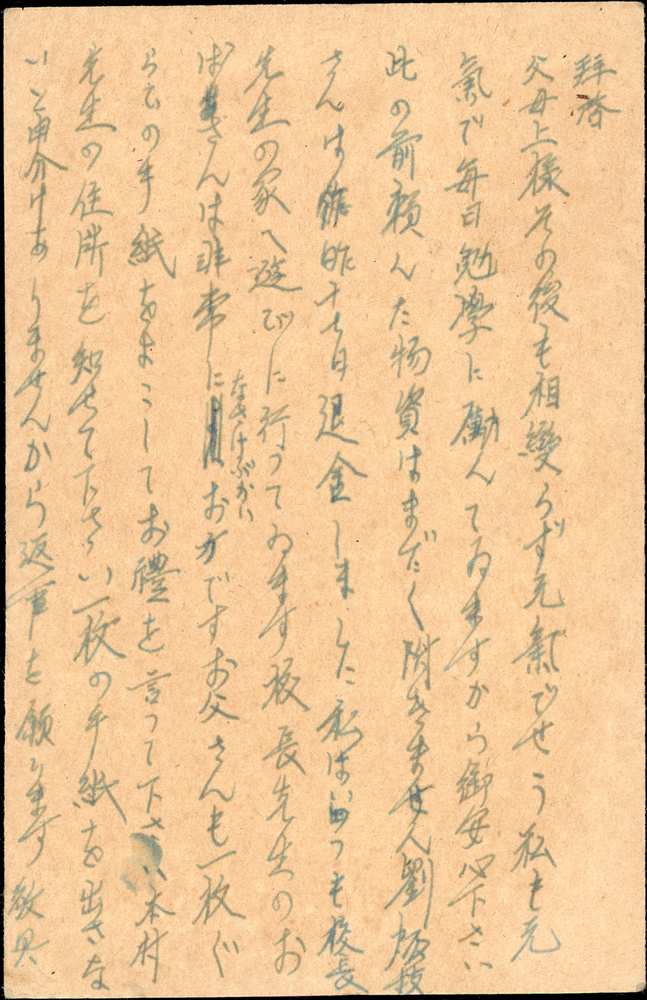 拝啓
父母上様その後も相變らず元氣でせう私も元
氣で毎日勉學に勵んでゐますから御安心下さい
此の前頼んだ物資はまだ附きません劉
さんは昨十七日退舍しました私はいつも校長
先生の家へ遊びに行ってゐます校長先生のお
ばさんは非常になさけぶかいお方ですお父さんも一枚ぐ
らゐの手紙をおこしてお禮を言って下さい木村
先生の住所を知せて下さい一枚の手紙を出さな
いと申分けありませんから返事を願ります敬具